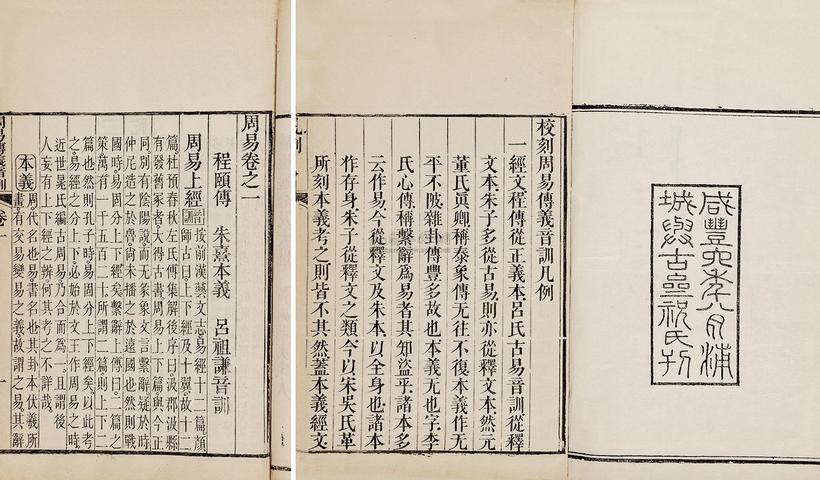 咸豐六年八月浦
城與古齋祝氏刊
校刻周易傳義音訓凡例
一經文程傳從正義本呂氏古易音訓從釋
文本朱子多從古易則亦從釋文本然元
董氏眞卿稱泰象傳无往不復本義作无
平不陂雜卦傳豐多故也本義无也字李
氏心傳稱繫辭爲易者其知盜乎諸本多
云作易今從釋文及朱本以全身也諸本
作存身朱子從釋文之類今以宋吳氏革
所刻本義考之則皆不其然蓋本義經文
凡例
周易卷之一
程頤傳 朱熹本義 呂祖謙音訓
周易上經 音訓 按前漢藝文志易經十二篇顔
師古曰上下經及十翼故十二
篇杜預春秋左氏傳集解後序曰汲郡汲縣
有發舊冢者大得古書周易上下篇與今正
同別有陰陽說而无彖象文言繫辭疑於時
仲尼造之於魯尚未播之於遠國也然則戰
國時易固分上下經矣繫辭上傳曰二篇之
策萬有一千五百二十所謂二篇則上下二
篇也然則孔子時易固分上下經矣以此考
之易經之分上下必始於文王作周易之時
近世晁氏編古周易乃合而爲一且謂後
人妄有上下經之辨何其考之不詳哉
本義 周代名也易書名也其卦本伏羲所
畫有交易變易之義故謂之易其辭
周易傳義音訓 卷一
一